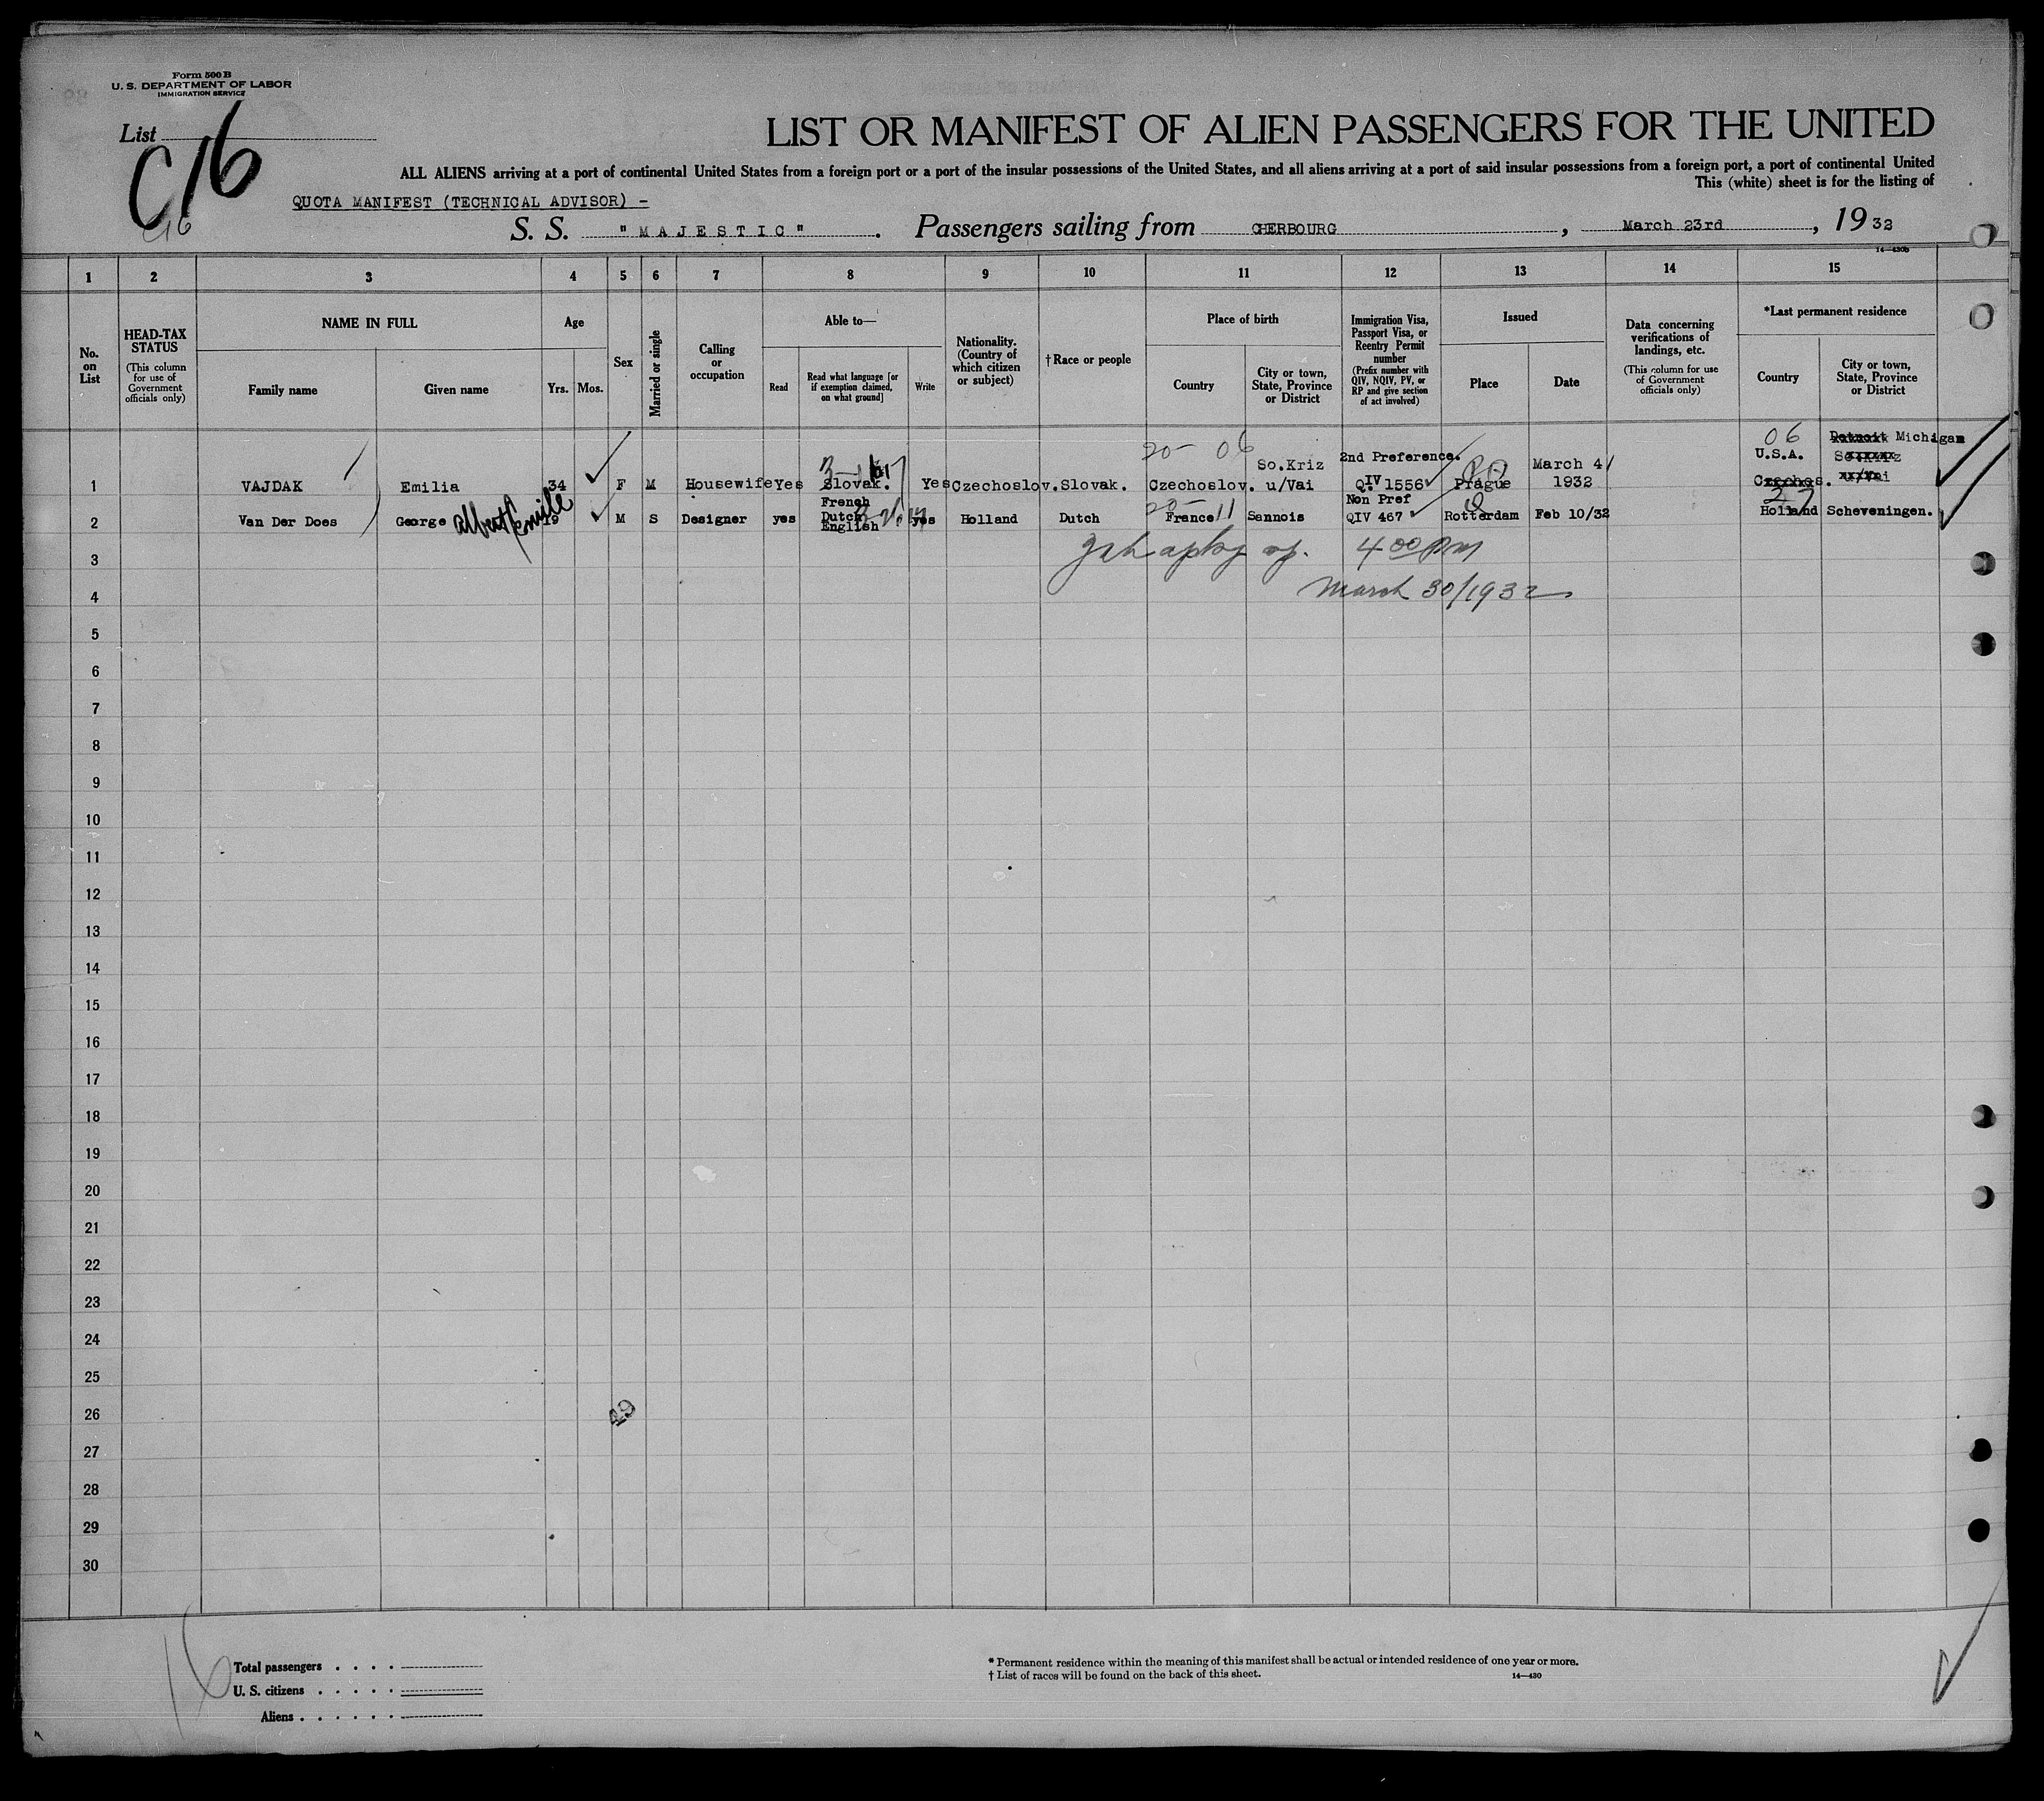 Form 500 B
U. S. DEPARTMENT OF LABOR
IMMIGRATION SERVICE
List
C16
C16
LIST OR MANIFEST OF ALIEN PASSENGERS FOR THE UNITED
ALL ALIENS arriving at a port of continental United States from a foreign port or a port of the insular possessions of the United States, and all aliens arriving at a port of said insular possessions from a foreign port, a port of continental United
This (white) sheet is for the listing of
QUOTA MANIFEST (TECHNICAL ADVISOR) -
S. S. "MAJESTIC". Passengers sailing from CHERBOURG, March 23rd, 1932
14-430b
1 2 3 4 5 6 7 8 9 10 11 12 13 14 15
No. on List
HEAD-TAX STATUS
(This column for use of Government officials only)
NAME IN FULL
Family name
Given name
Age
Yrs. Mos.
Sex
Married or single
Calling or occupation
Able to—
Read
Read what language [or if exemption claimed, on what ground]
Write
Nationality. (Country of which citizen or subject)
† Race or people
Place of birth
Country
City or town, State, Province or District
Immigration Visa, Passport Visa, or Reentry Permit number
(Prefix number with QIV, NQIV, PV, or RP and give section of act involved)
Issued
Place
Date
Data concerning verifications of landings, etc.
(This column for use of Government officials only)
*Last permanent residence
Country
City or town, State, Province or District
20- 06
06
Detroit Michigan
2nd Preference.
U.S.A.
So.Kriz
March 4/
So.Kriz
1 VAJDAK Emilia 34 F M Housewife Yes Slovak. Yes Czechoslov. Slovak. Czechoslov. u/Vai QIV 1556 Prague 1932 Czechos. u/Vai
French
Non Pref
2 Van Der Does George Albert Emille 19 M S Designer yes Dutch yes Holland Dutch France 11 Sannois QIV 467 Rotterdam Feb 10/32 Holland Scheveningen.
English
3
4 00 PM
4
March 30/1932
5
6
7
8
9
10
11
12
13
14
15
16
17
18
19
20
21
22
23
24
25
26
49
27
28
29
30
16
Total passengers . . . .
U. S. citizens . . . . .
Aliens . . . . . .
* Permanent residence within the meaning of this manifest shall be actual or intended residence of one year or more.
† List of races will be found on the back of this sheet.
14—430